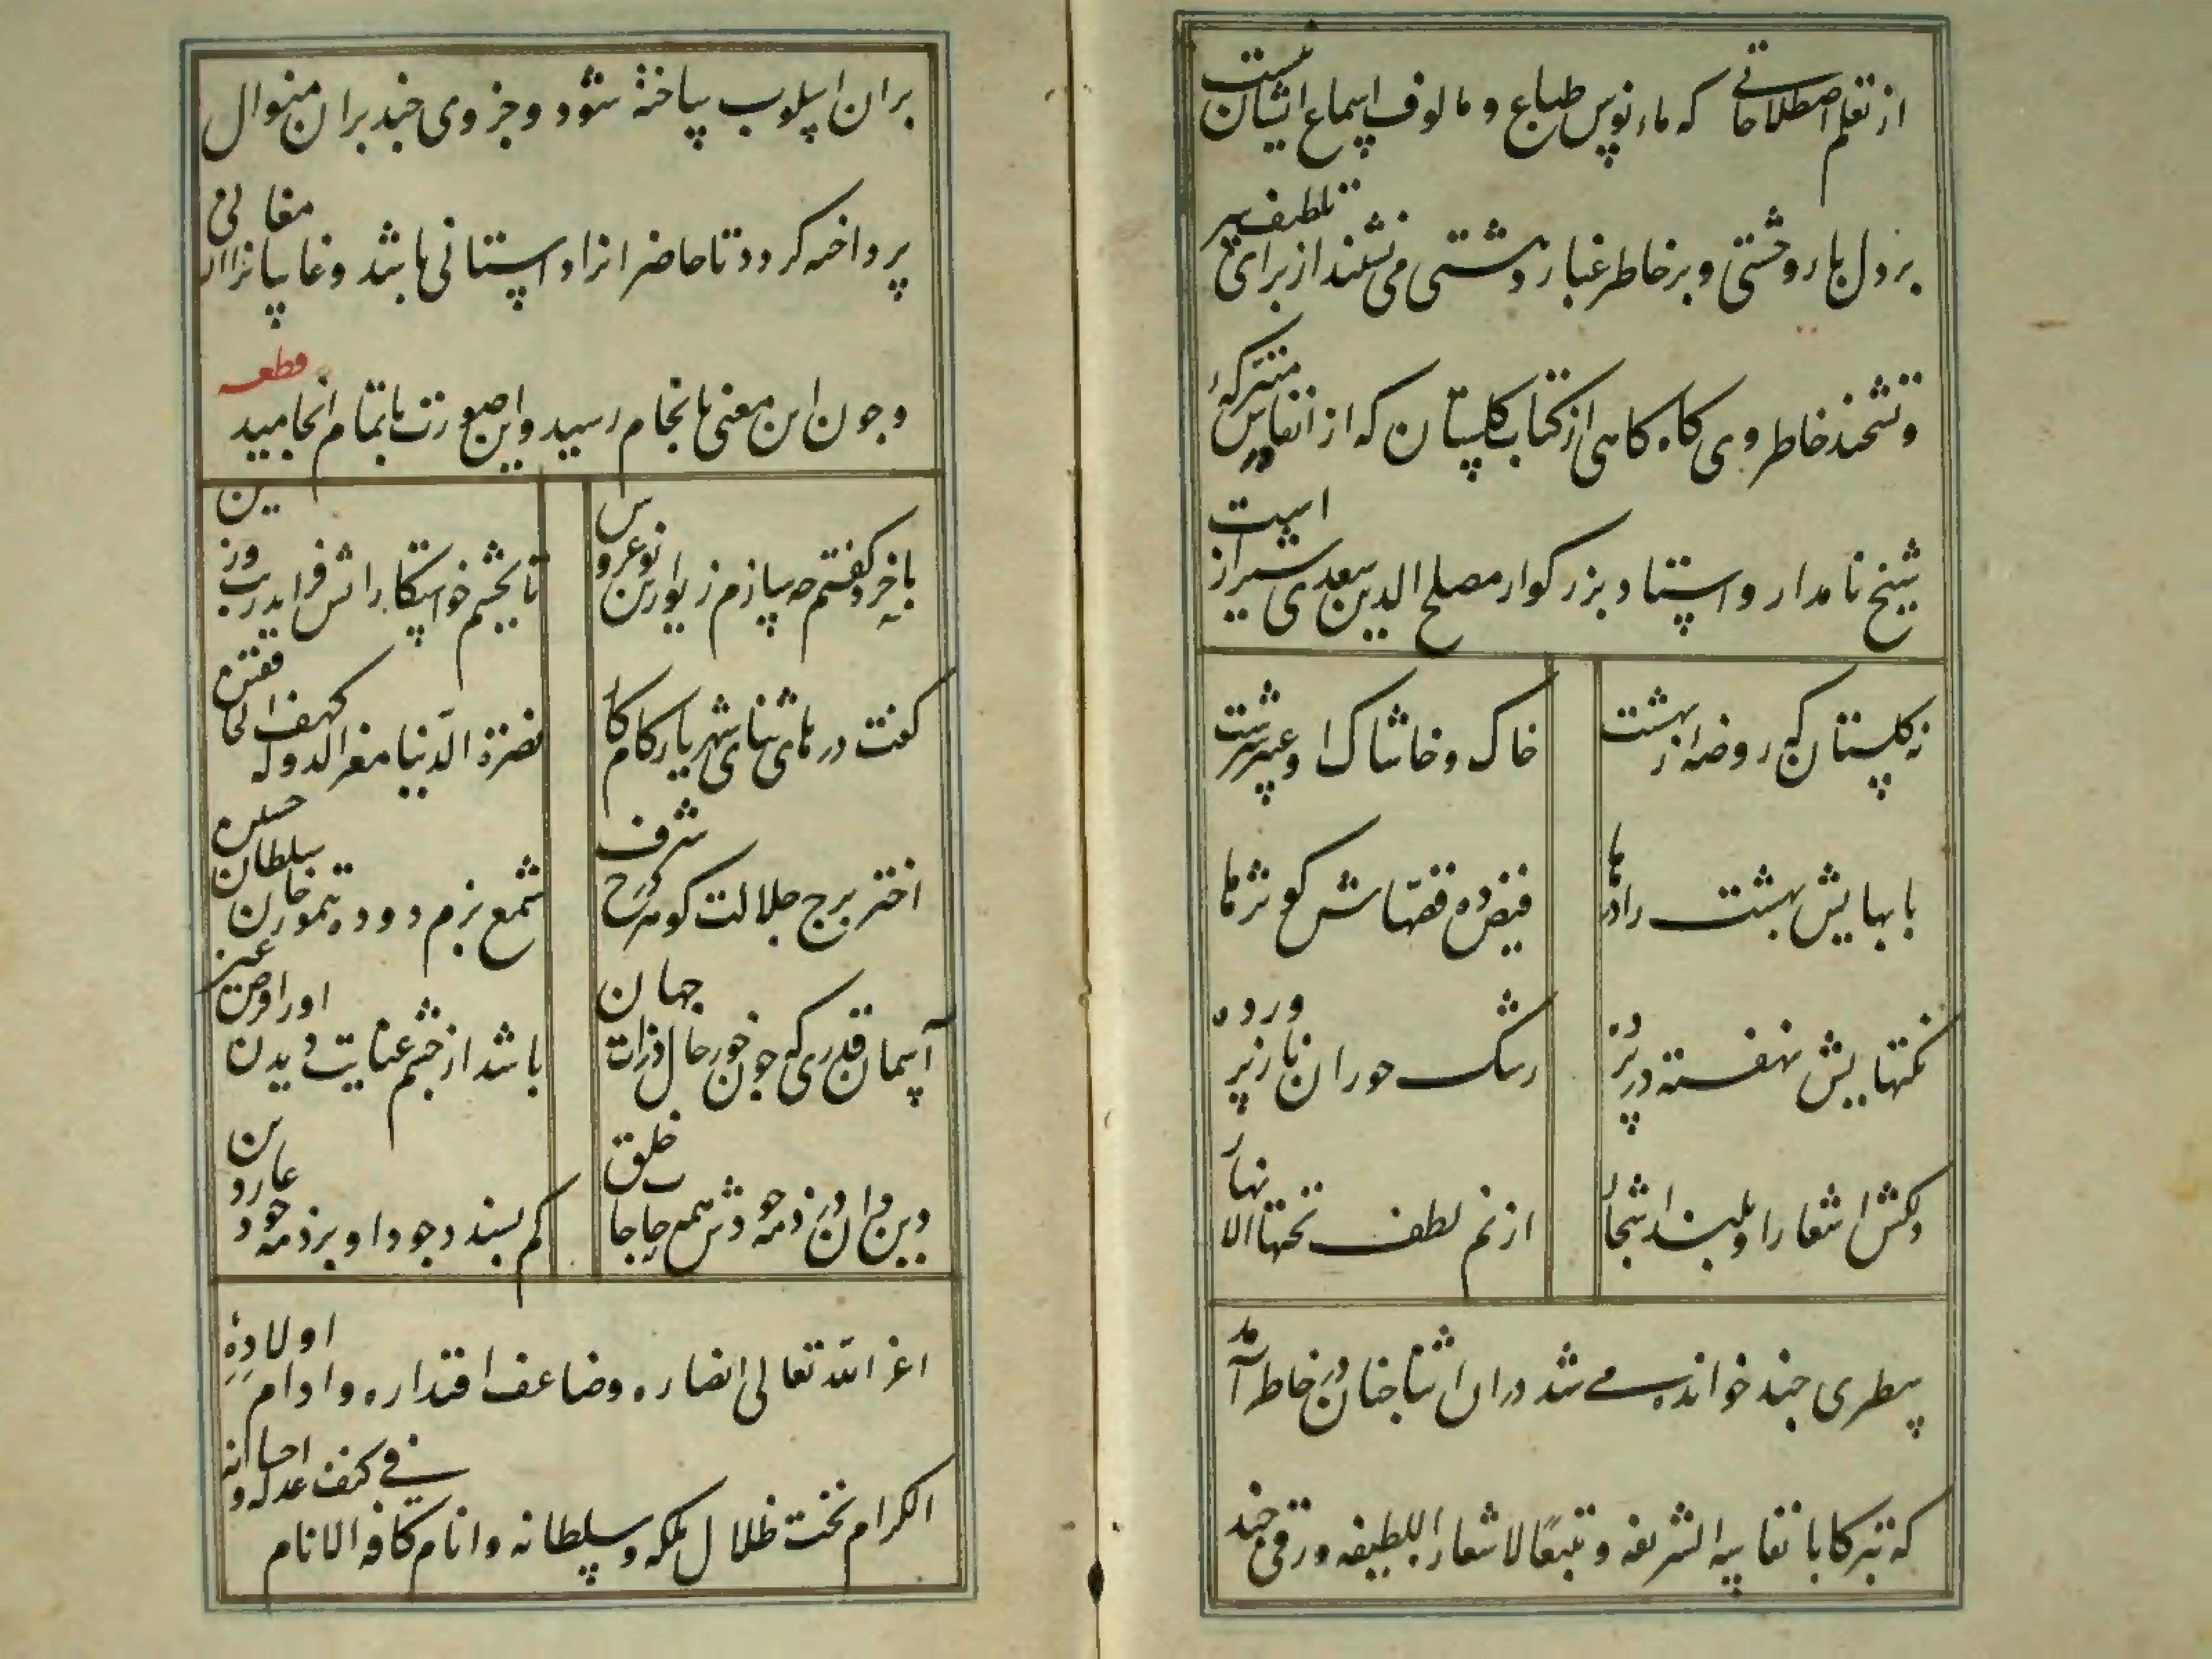 از تعلم اصطلاحاتی که مانوس طباع و مالوف اسماع ایشان نیست
بر دل بار وحشتی و بر خاطر غبار دهشتی می نشیند از برای تلطیف سر
و تشحیذ خاطر وی گاه گاهی از کتاب گلستان که از انفاس متبرکهٔ
شیخ نامدار و استاد بزرگوار مصلح الدین سعدی شیراز است
نه گلستان که روضه از بهشت
خاک و خاشاک او عبیر سرشت
بابهایش بهشت را درها
فیض ده قصهاش کوثرها
نکتهایش نهفته در پرده
رشک حوران ناز پرورده
دلکش اشعار او بلند اشجار
از نم لطف تحتها الانهار
سطری چند خوانده می شد در آن اثنا چنان در خاطر آمد
که تبرکا بانفاسه الشریفه و تتبعًا لاشعاره اللطیفه ورقی چند
بران اسلوب ساخته شود و جزوی چند بران منوال
پرداخته گردد تا حاضرانرا داستانی باشد و غایبانرا ارمغانی
و چون این معنی بانجام رسید و این صورت باتمام انجامید قطعه
با خرد گفتم چه سازم زیور این نوعروس
تا بچشم خواستگارانش فزاید زیب و زین
گفت درهای ثنای شهریار کامکار
نصرة الدنیا معز الدوله کهف الخافقین
اختر برج جلالت گوهر درج شرف
شمع بزم دوده تیمورخان سلطان حسین
آسمان قدری که چون خور حال ذرات جهان
باشد از چشم عنایت دیدن او را فرض عین
دین دان در ذمه جودش همه حاجات خلق
کم پسندد جود او بر ذمه خود عار دین
اعز الله تعالی انصاره و ضاعف اقتداره و ادام اولاده
الکرام تحت ظلال ملکه و سلطانه و انام کافه الانام فی کنف عدله و احسانه